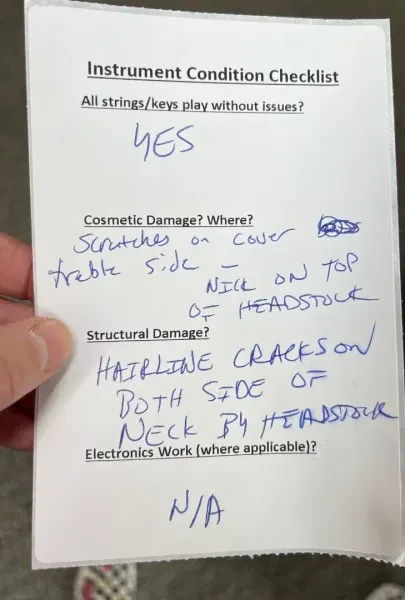 Instrument Condition Checklist
All strings/keys play without issues?
YES
Cosmetic Damage? Where?
Scratches on cover
treble side –
NICK ON TOP
OF HEADSTOCK
Structural Damage?
HAIRLINE CRACKS ON
BOTH SIDE OF
NECK BY HEADSTOCK
Electronics Work (where applicable)?
N/A